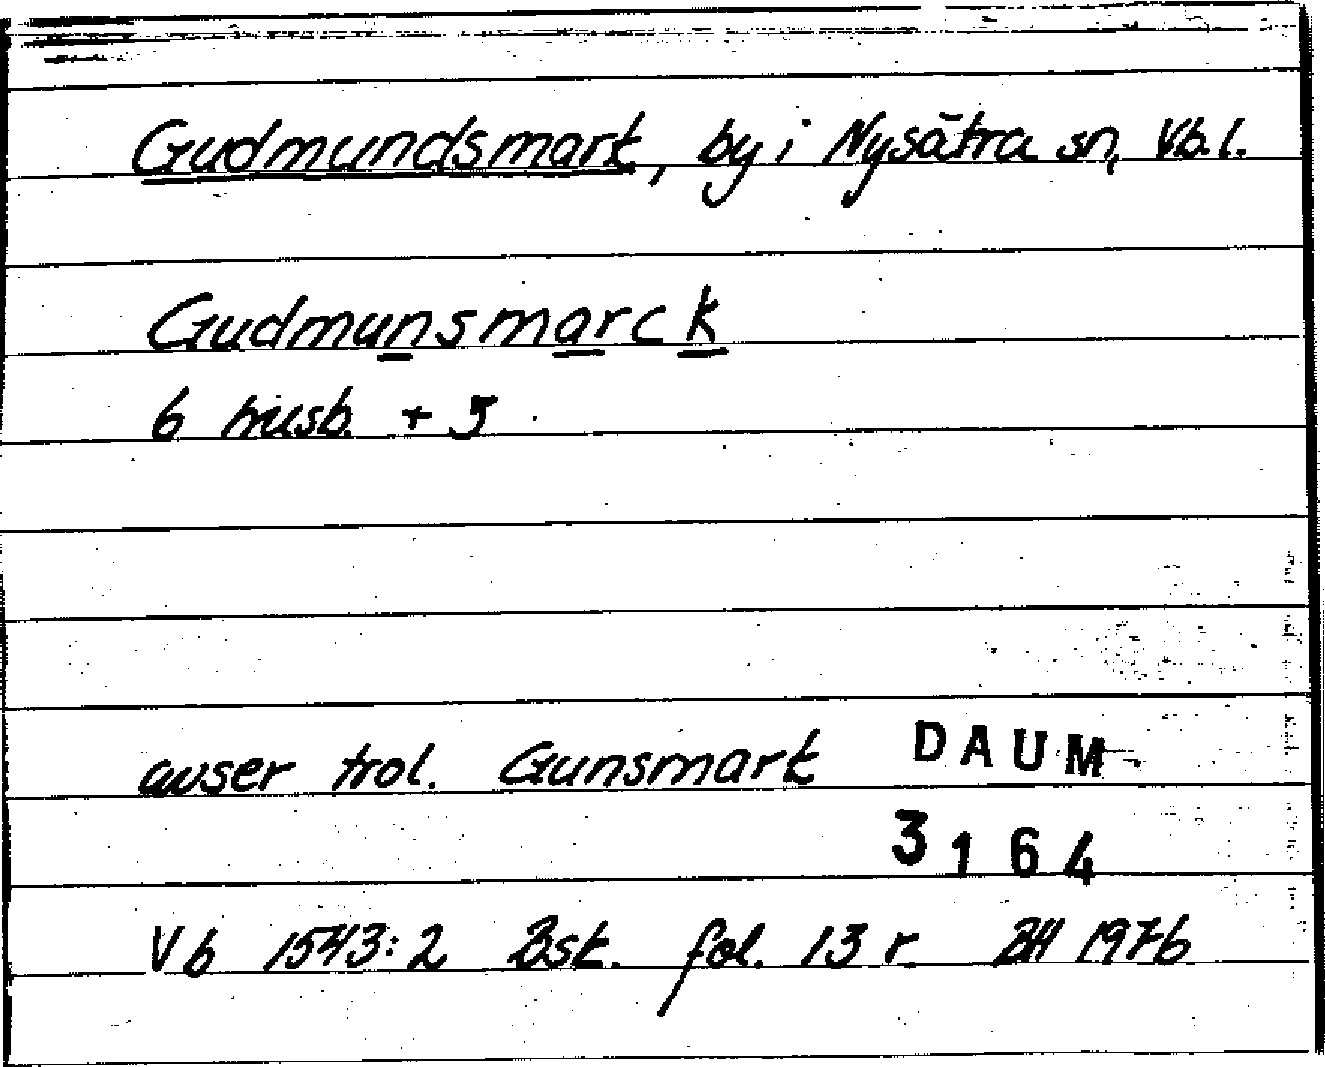 Gudmundsmark, by i Nysätra sn, Vb.l.
Gudmunsmarck
6 husb. + 5
avser trol. Gunsmark
DAUM
3164
Vb 1543:2 Bsk. fol. 13 r. BH 1976